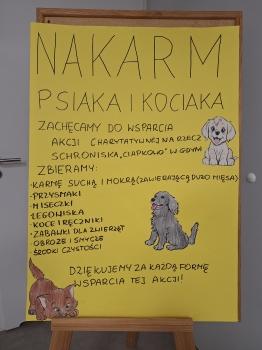 NAKARM
PSIAKA I KOCIAKA
ZACHĘCAMY DO WSPARCIA
AKCJI CHARYTATYWNEJ NA RZECZ
SCHRONISKA „CIAPKOWO" W GDYNI
ZBIERAMY:
-KARMĘ SUCHĄ I MOKRĄ (ZAWIERAJĄCĄ DUŻO MIĘSA)
-PRZYSMAKI
-MISECZKI
-LEGOWISKA
-KOCE I RĘCZNIKI
-ZABAWKI DLA ZWIERZĄT
-OBROŻE I SMYCZE
-ŚRODKI CZYSTOŚCI
DZIĘKUJEMY ZA KAŻDĄ FORMĘ
WSPARCIA TEJ AKCJI!